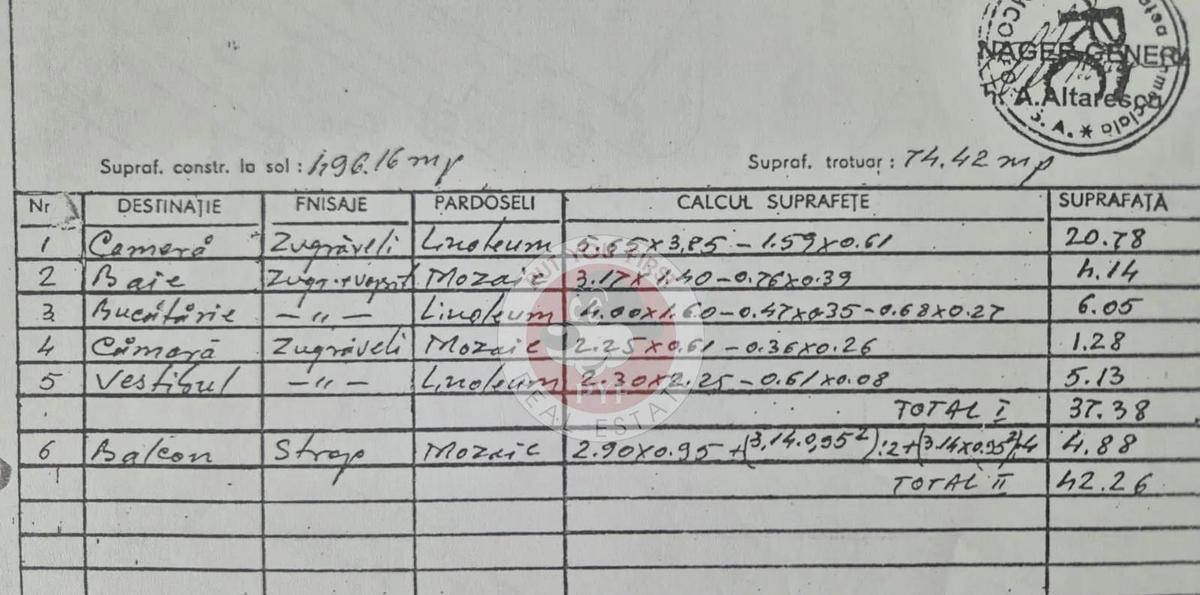 NAGER GENER
A.Altarescu
S. A. *
Supraf. constr. la sol : 496.16 mp Supraf. trotuar : 74.42 mp
Nr DESTINAȚIE FNISAJE PARDOSELI CALCUL SUPRAFEȚE SUPRAFAȚĂ
1 Cameră Zugrăveli Linoleum 5.65x3.85 - 1.59x0.61 20.78
2 Baie Zugr.+vopsit Mozaic 3.17x1.40 - 0.76x0.39 4.14
3 Bucătărie — " — Linoleum 4.00x1.60 - 0.47x0.35 - 0.68x0.27 6.05
4 Cămară Zugrăveli Mozaic 2.25x0.61 - 0.36x0.26 1.28
5 Vestibul — " — Linoleum 2.30x2.25 - 0.61x0.08 5.13
TOTAL I 37.38
6 Balcon Strop Mozaic 2.90x0.95 + (3,14.0,95²):2 + (3.14x0.95²):4 4.88
TOTAL II 42.26
PUT YOUR FIRST
PYF
REAL ESTATE